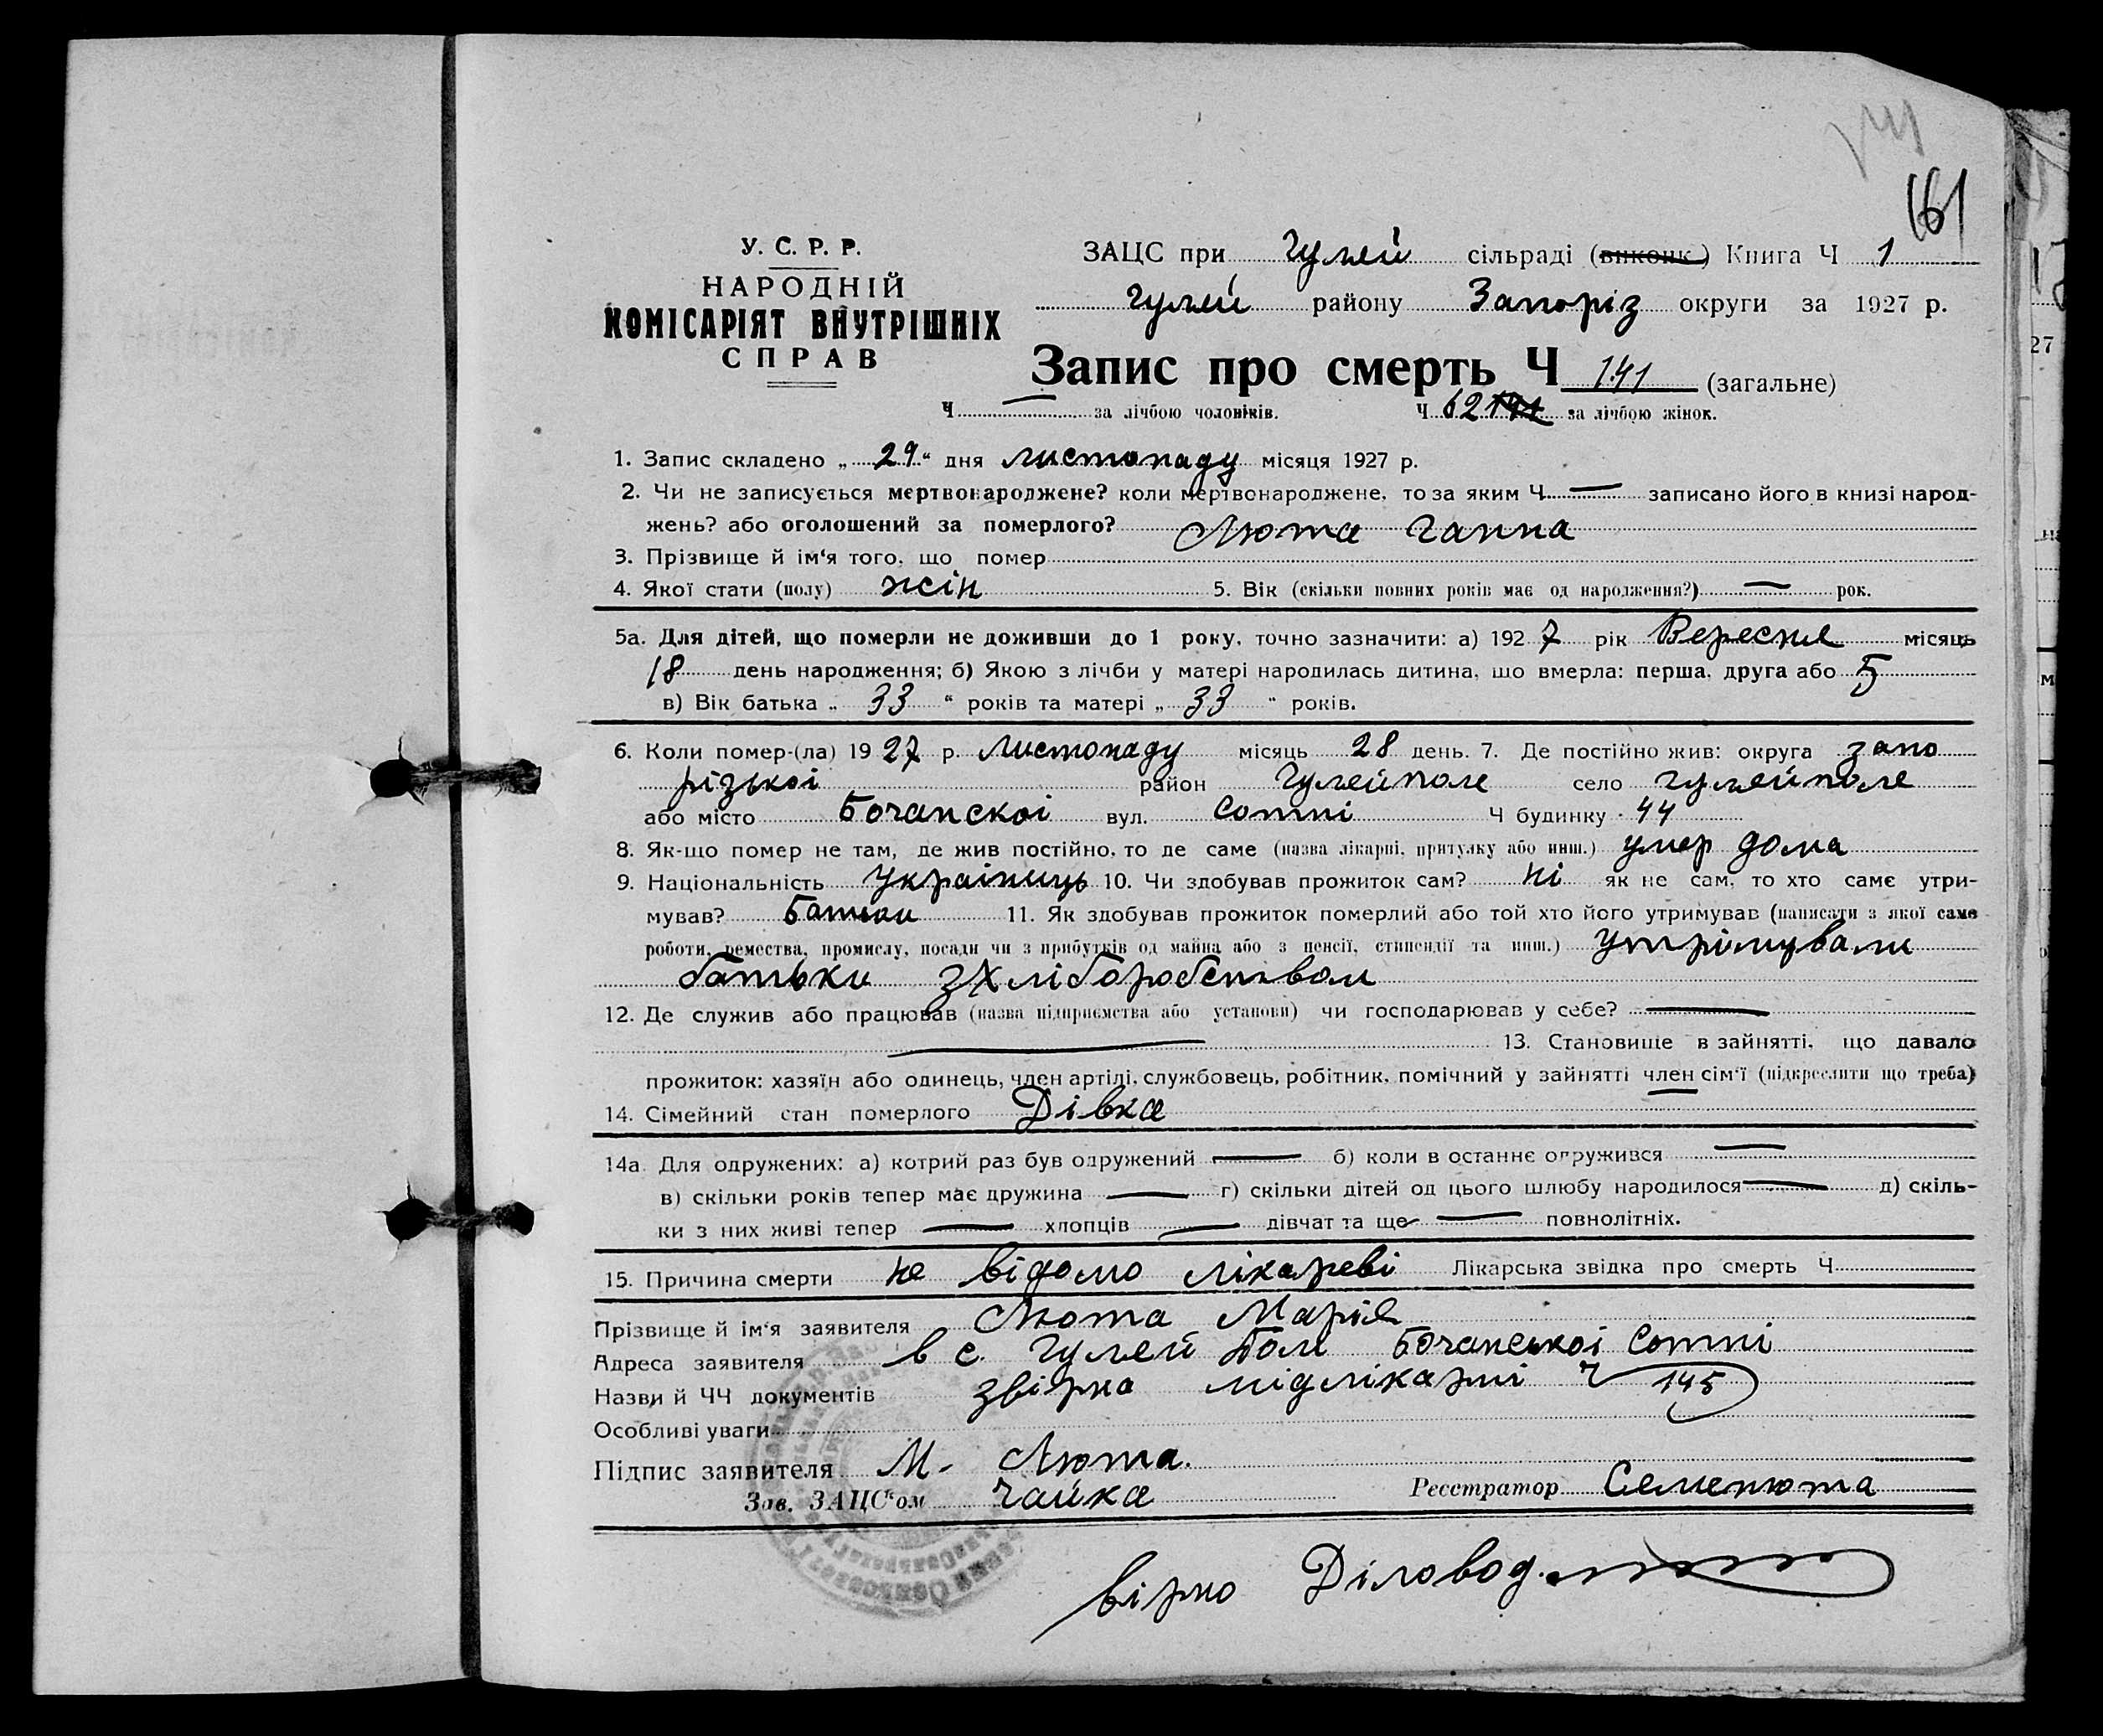 161
У. С. Р. Р.
НАРОДНІЙ
КОМІСАРІЯТ ВНУТРІШНІХ
СПРАВ
ЗАЦС при Гуляй сільраді (виконк.) Книга Ч 1
Гуляй району Запоріз округи за 1927 р.
Запис про смерть Ч 141 (загальне)
Ч — за лічбою чоловіків. Ч 62 141 за лічбою жінок.
1. Запис складено „29“ дня листопаду місяця 1927 р.
2. Чи не записується мертвонароджене? коли мертвонароджене, то за яким Ч — записано його в книзі народ-
жень? або оголошений за померлого? Люта Ганна
3. Прізвище й ім‘я того, що помер
4. Якої стати (полу) жін 5. Вік (скільки повних років має од народження?) — рок.
5а. Для дітей, що померли не доживши до 1 року, точно зазначити: а) 1927 рік Вересня місяць
18 день народження; б) Якою з лічби у матері народилась дитина, що вмерла: перша, друга або 5
в) Вік батька „ 33 “ років та матері „ 33 “ років.
6. Коли помер-(ла) 1927 р. листопаду місяць 28 день. 7. Де постійно жив: округа запо
різької район Гуляйполе село гуляйполе
або місто Бочанскої вул. сотні Ч будинку 44
8. Як-що помер не там, де жив постійно, то де саме (назва лікарні, притулку або инш.) умер дома
9. Національність Українець 10. Чи здобував прожиток сам? ні як не сам, то хто саме утри-
мував? Батьки 11. Як здобував прожиток померлий або той хто його утримував (написати з якої саме
роботи, ремества, промислу, посади чи з прибутків од майна або з пенсії, стипендії та инш.) утрімували
батьки зхліборобством
12. Де служив або працював (назва підприємства або установи) чи господарював у себе? —
— 13. Становище в зайнятті, що давало
прожиток: хазяїн або одинець, член артілі, службовець, робітник, помічний у зайнятті член сім‘ї (підкреслити що треба)
14. Сімейний стан померлого Дівка
14а. Для одружених: а) котрий раз був одружений — б) коли в останнє одружився —
в) скільки років тепер має дружина — г) скільки дітей од цього шлюбу народилося — д) скіль-
ки з них живі тепер — хлопців — дівчат та ще — повнолітніх.
15. Причина смерти не відомо лікареві Лікарська звідка про смерть Ч
Прізвище й ім‘я заявителя Люта Марія
Адреса заявителя в с. Гуляй Поли Бочанської Сотні
Назви й ЧЧ документів Ч 145
Особливі уваги
Підпис заявителя М. Люта.
Зав. ЗАЦС“ом Чайка Реєстратор Семенюта
вірно Діловод.